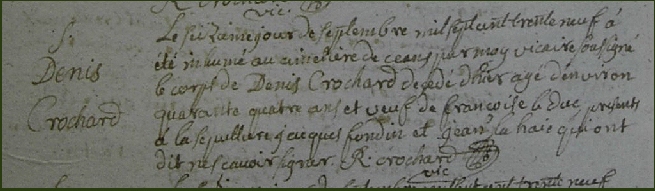 R. Crochard
vic.
S.
Denis
Crochard
Le seizieme jour de septembre mil sept cent trente neuf á
été inhumé au cimetiere de ceans par moy vicaire soussigné
le corps de Denis Crochard decedé d'hier agé d'environ
quarante quatre ans et veuf de francoise le duc, presents
á la sepulture jacques fondin et jean la haie qui ont
dit ne scavoir signer. R. crochard
vic